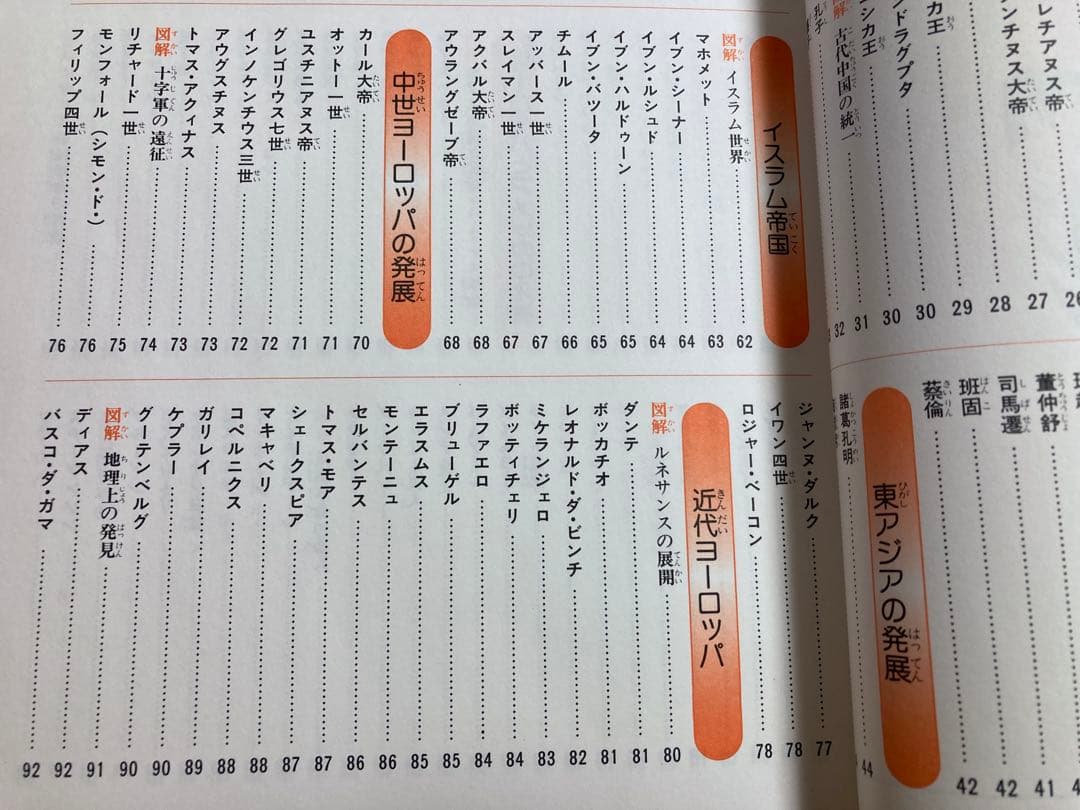 レチアヌス帝 26
ンチヌス大帝 27
28
ンドラグプタ 29
カ王 30
シカ王 30
図解 古代中国の統一 31
孔子 32
董仲舒 41
司馬遷 42
班固 42
蔡倫
東アジアの発展
諸葛孔明 44
イスラム帝国
図解 イスラム世界 62
マホメット 63
イブン・シーナー 64
イブン・ルシュド 64
イブン・ハルドゥーン 65
イブン・バツータ 65
チムール 66
アッバース一世 67
スレイマン一世 67
アクバル大帝 68
アウラングゼーブ帝 68
中世ヨーロッパの発展
カール大帝 70
オットー一世 71
ユスチニアヌス帝 71
グレゴリウス七世 72
インノケンチウス三世 72
アウグスチヌス 73
トマス・アクィナス 73
図解 十字軍の遠征 74
リチャード一世 75
モンフォール(シモン・ド・) 76
フィリップ四世 76
ジャンヌ・ダルク 77
イワン四世 78
ロジャー・ベーコン 78
近代ヨーロッパ
図解 ルネサンスの展開 80
ダンテ 81
ボッカチオ 81
レオナルド・ダ・ビンチ 82
ミケランジェロ 83
ボッティチェリ 84
ラファエロ 84
ブリューゲル 85
エラスムス 85
モンテーニュ 86
セルバンテス 86
トマス・モア 87
シェークスピア 87
マキャベリ 88
コペルニクス 88
ガリレイ 89
ケプラー 90
グーテンベルグ 90
図解 地理上の発見 91
ディアス 92
バスコ・ダ・ガマ 92